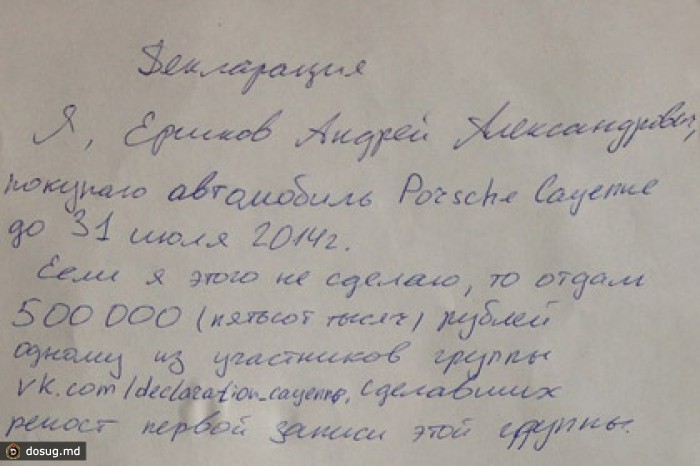 Декларация
Я, Ершков Андрей Александрович,
покупаю автомобиль Porsche Cayenne
до 31 июля 2014г.
Если я этого не сделаю, то отдам
500 000 (пятьсот тысяч) рублей
одному из участников группы
vk.com/declaration_cayenne, сделавших
репост первой записи этой группы.
dosug.md